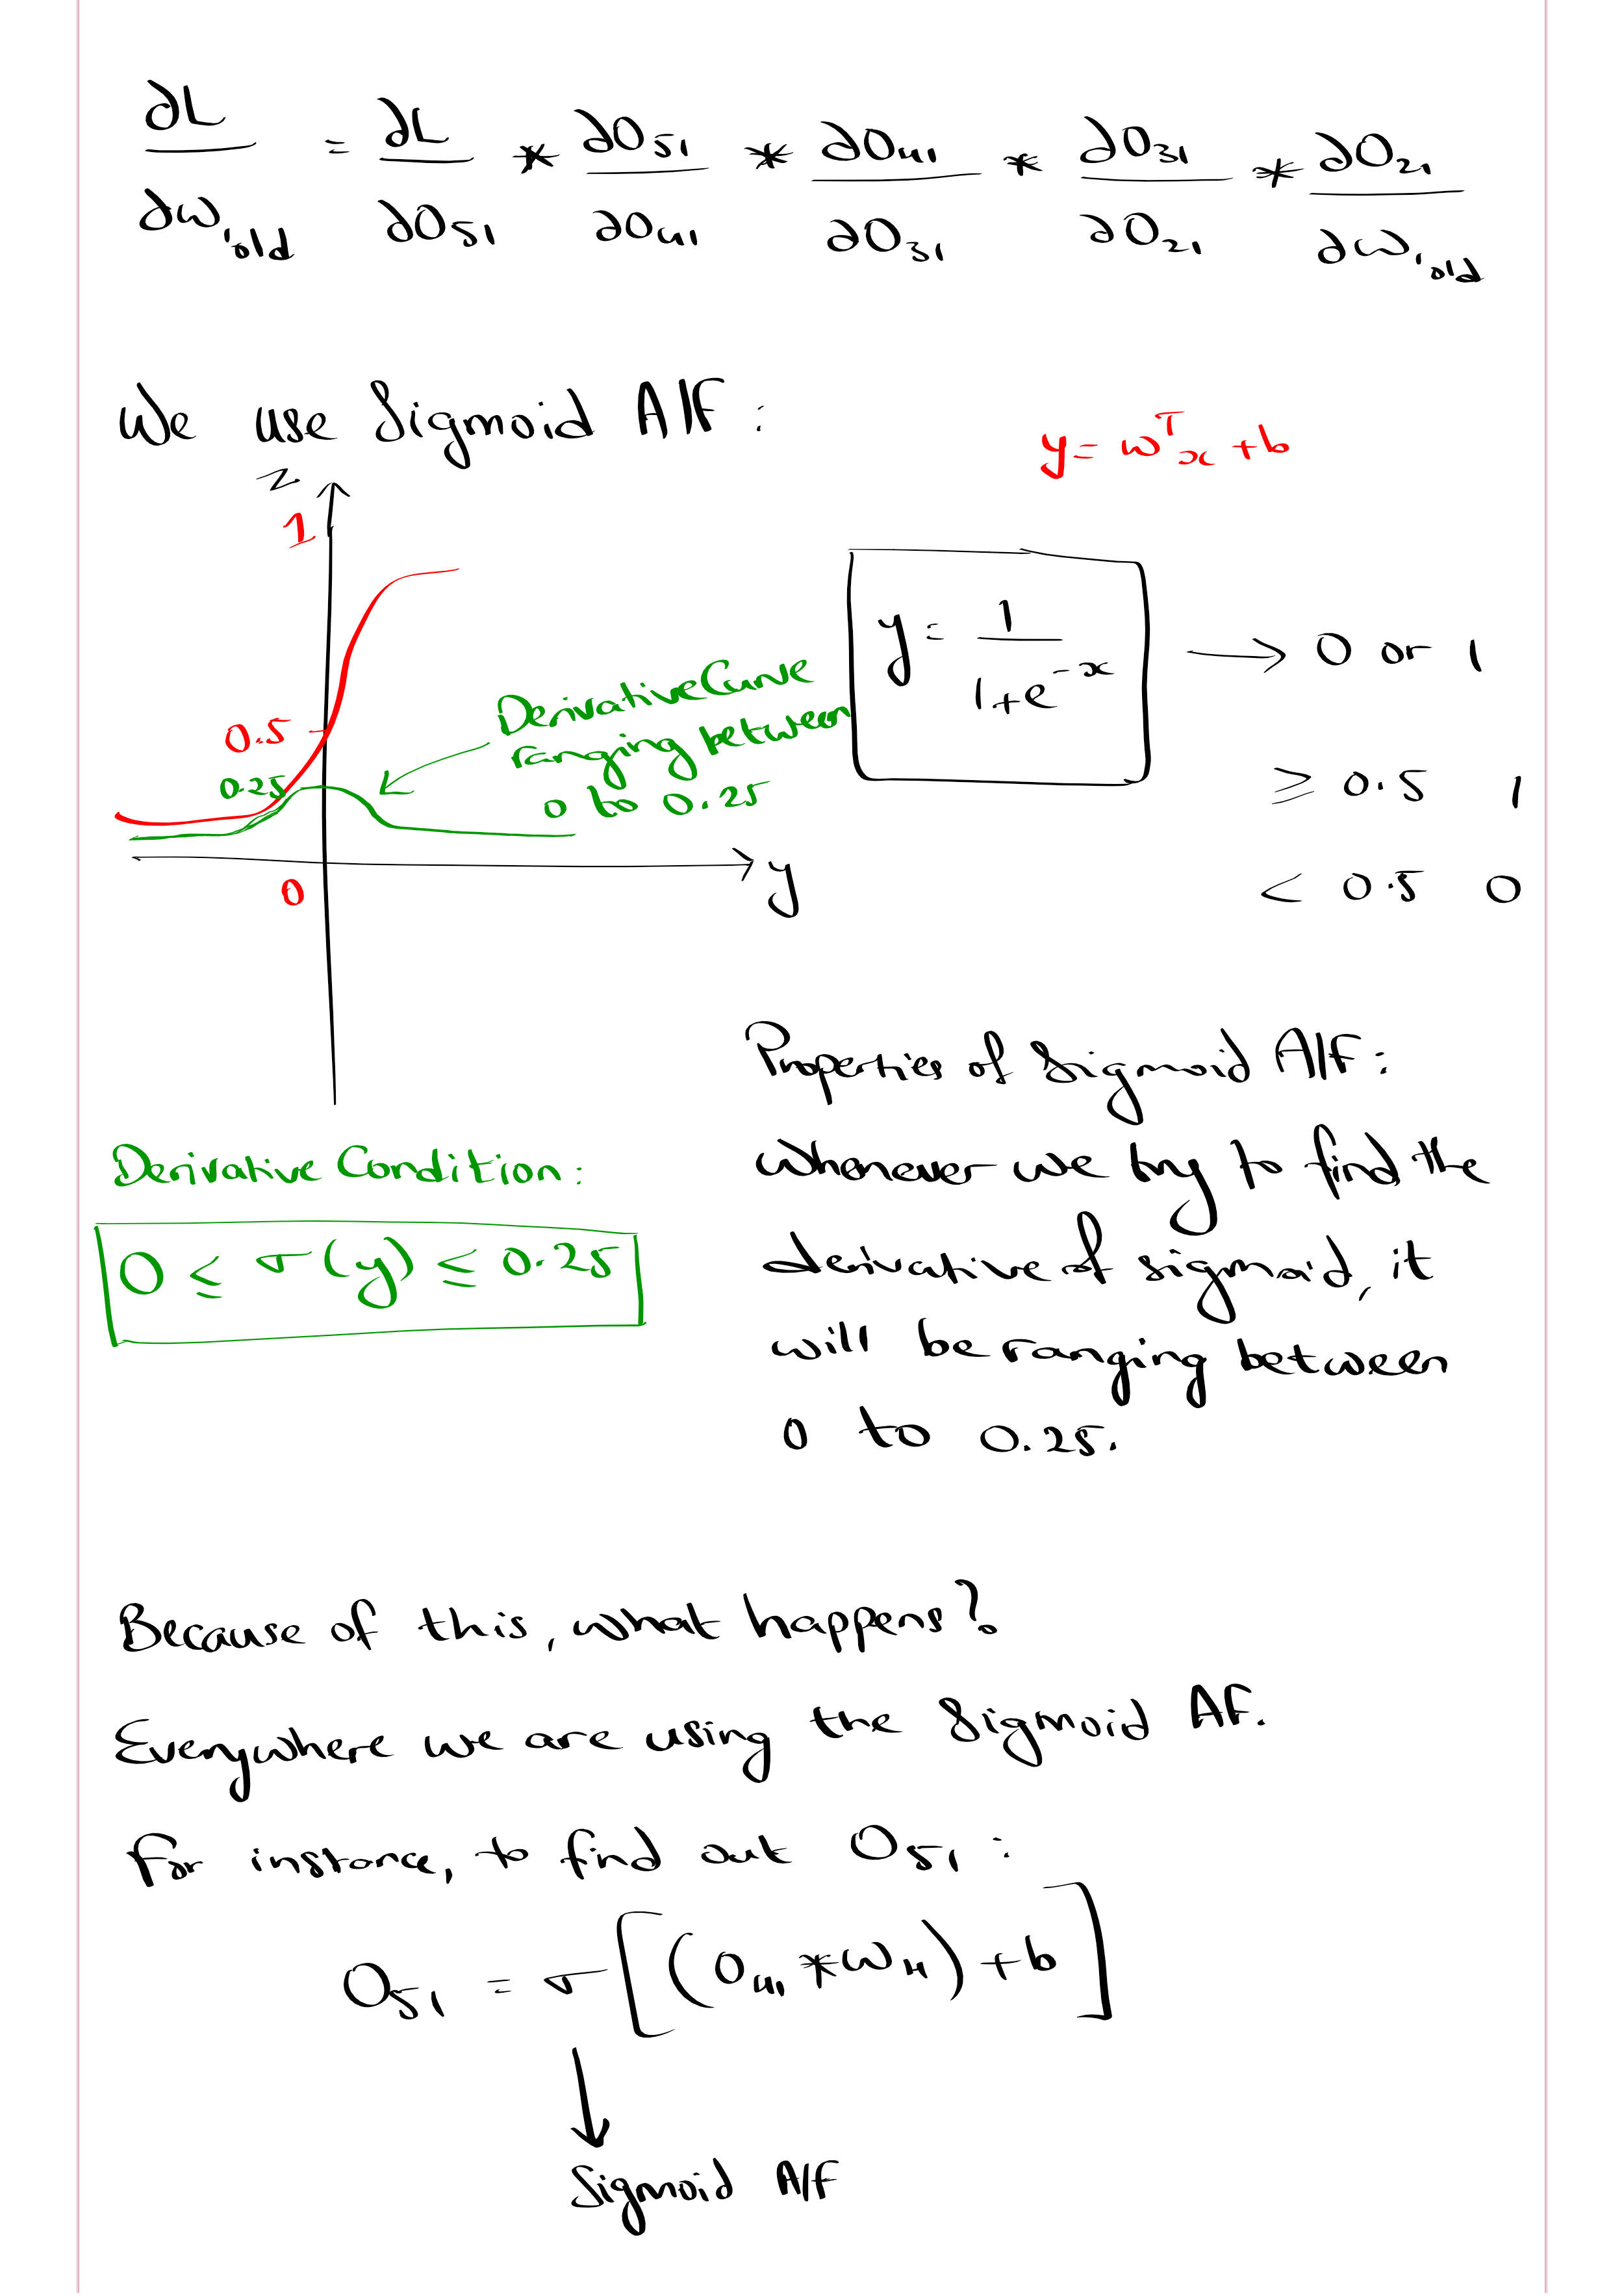 ∂L/∂w₁old = ∂L/∂O₅₁ * ∂O₅₁/∂O₄₁ * ∂O₄₁/∂O₃₁ * ∂O₃₁/∂O₂₁ * ∂O₂₁/∂w₁old
We use Sigmoid A/F :
y = wᵀx + b
z
1
0.5
0.25
0
y
Derivative Curve
ranging between
0 to 0.25
y = 1/(1+e⁻ˣ) → 0 or 1
≥ 0.5 1
< 0.5 0
Properties of Sigmoid A/F :
Whenever we try to find the
derivative of sigmoid, it
will be ranging between
0 to 0.25.
Derivative Condition :
0 ≤ σ(y) ≤ 0.25
Because of this, what happens?
Everywhere we are using the Sigmoid AF.
For instance, to find out O₅₁ :
O₅₁ = σ[(O₄₁ * w₄) + b]
↓
Sigmoid A/F